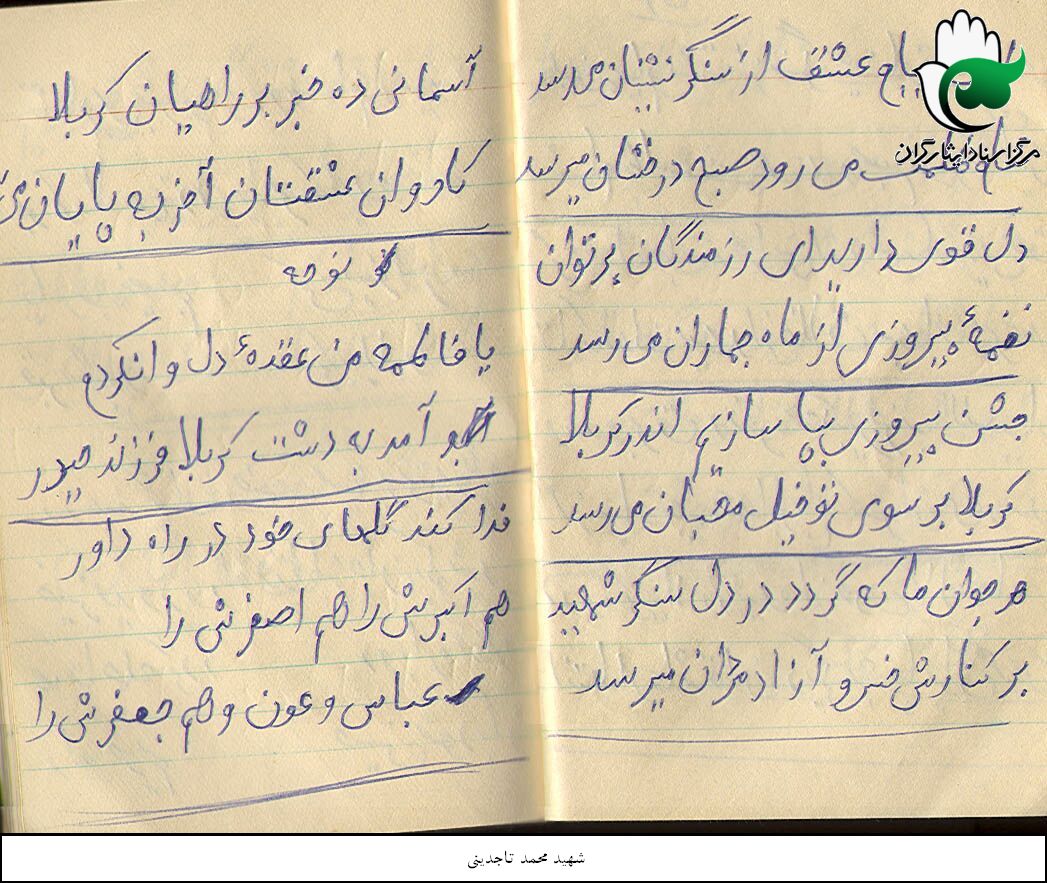 پیام عشق از سنگر نشینان میرسد
ظلمت می رود صبح درخشان میرسد
دل قوی دارید ای رزمندگان پر توان
نغمهٔ پیروزی از ماه جماران می رسد
جشن پیروزی بپا سازیم اندر کربلا
کربلا بر سوی نو خیل محبان می رسد
هر جوان ما که گردد در دل سنگر شهید
بر کنارش خسرو آزاد مردان میرسد
آسمانی ده خبر بر راهیان کربلا
کاروان عشقتان آخر به پایان
نوحه
یا فاطمه من عقدهٔ دل وا نکردم
آمد به دشت کربلا فرزند حیدر
فدا کند گلهای خود در راه داور
هم اکبرش را هم اصغرش را
عباس و عون و هم جعفرش را
مرکز اسناد ایثارگران
شهید محمد تاجدینی